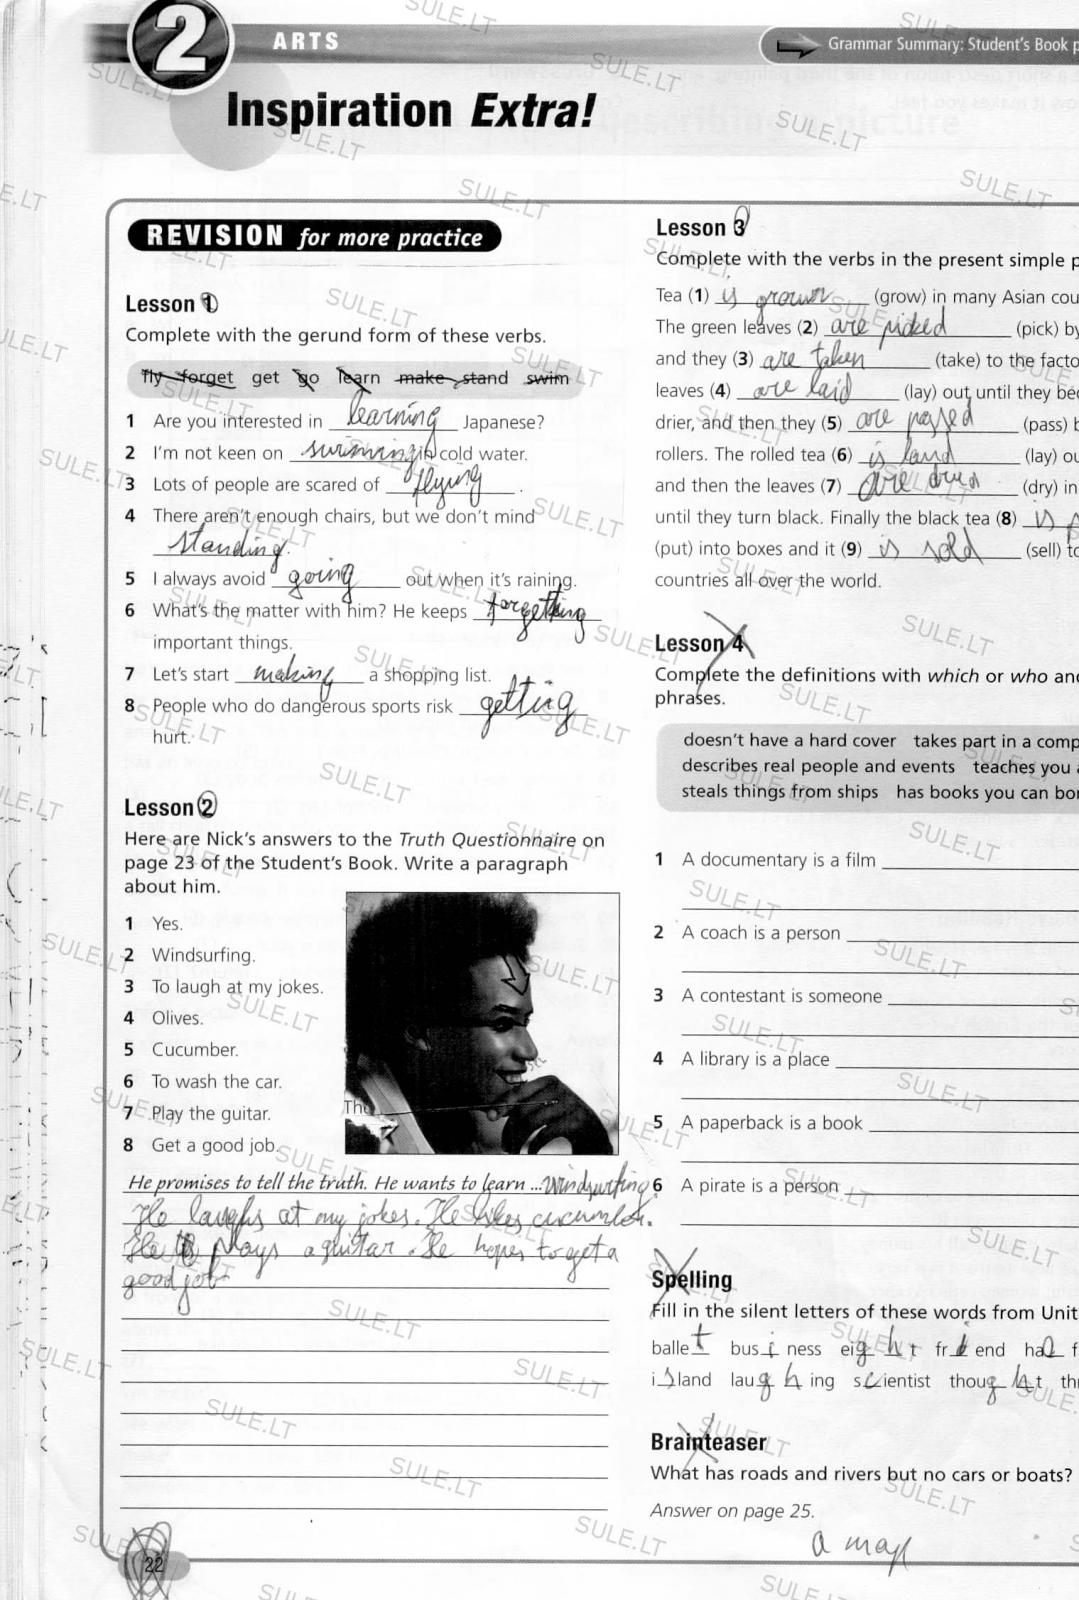 2 ARTS
Grammar Summary: Student's Book p
Inspiration Extra!
REVISION for more practice
Lesson 1
Complete with the gerund form of these verbs.
fly forget get go learn make stand swim
1 Are you interested in learning Japanese?
2 I'm not keen on swimming in cold water.
3 Lots of people are scared of flying.
4 There aren't enough chairs, but we don't mind
standing.
5 I always avoid going out when it's raining.
6 What's the matter with him? He keeps forgetting
important things.
7 Let's start making a shopping list.
8 People who do dangerous sports risk getting
hurt.
Lesson 2
Here are Nick's answers to the Truth Questionnaire on
page 23 of the Student's Book. Write a paragraph
about him.
1 Yes.
2 Windsurfing.
3 To laugh at my jokes.
4 Olives.
5 Cucumber.
6 To wash the car.
7 Play the guitar.
8 Get a good job.
The
He promises to tell the truth. He wants to learn ... windsurfing.
He laughs at my jokes. He likes cucumber.
He plays a guitar. He hopes to get a
good job
22
Lesson 3
Complete with the verbs in the present simple p
Tea (1) is grown (grow) in many Asian cou
The green leaves (2) are picked (pick) by
and they (3) are taken (take) to the facto
leaves (4) are laid (lay) out until they bec
drier, and then they (5) are passed (pass) b
rollers. The rolled tea (6) is laid (lay) ou
and then the leaves (7) are dried (dry) in
until they turn black. Finally the black tea (8) is p
(put) into boxes and it (9) is sold (sell) to
countries all over the world.
Lesson 4
Complete the definitions with which or who and
phrases.
doesn't have a hard cover takes part in a comp
describes real people and events teaches you a
steals things from ships has books you can bor
1 A documentary is a film
2 A coach is a person
3 A contestant is someone
4 A library is a place
5 A paperback is a book
6 A pirate is a person
Spelling
Fill in the silent letters of these words from Unit
ballet business eight friend hal f
island laughing scientist thought th
Brainteaser
What has roads and rivers but no cars or boats?
Answer on page 25.
a map
SULE.LT